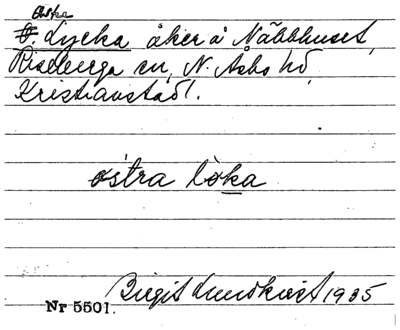 Östra
Ö. Lycka åker å Näbbhuset,
Riseberga sn, N. Åsbo hd,
Kristianstad l.
östra lòka
Birgit Lundkvist 1935
Nr 5501.